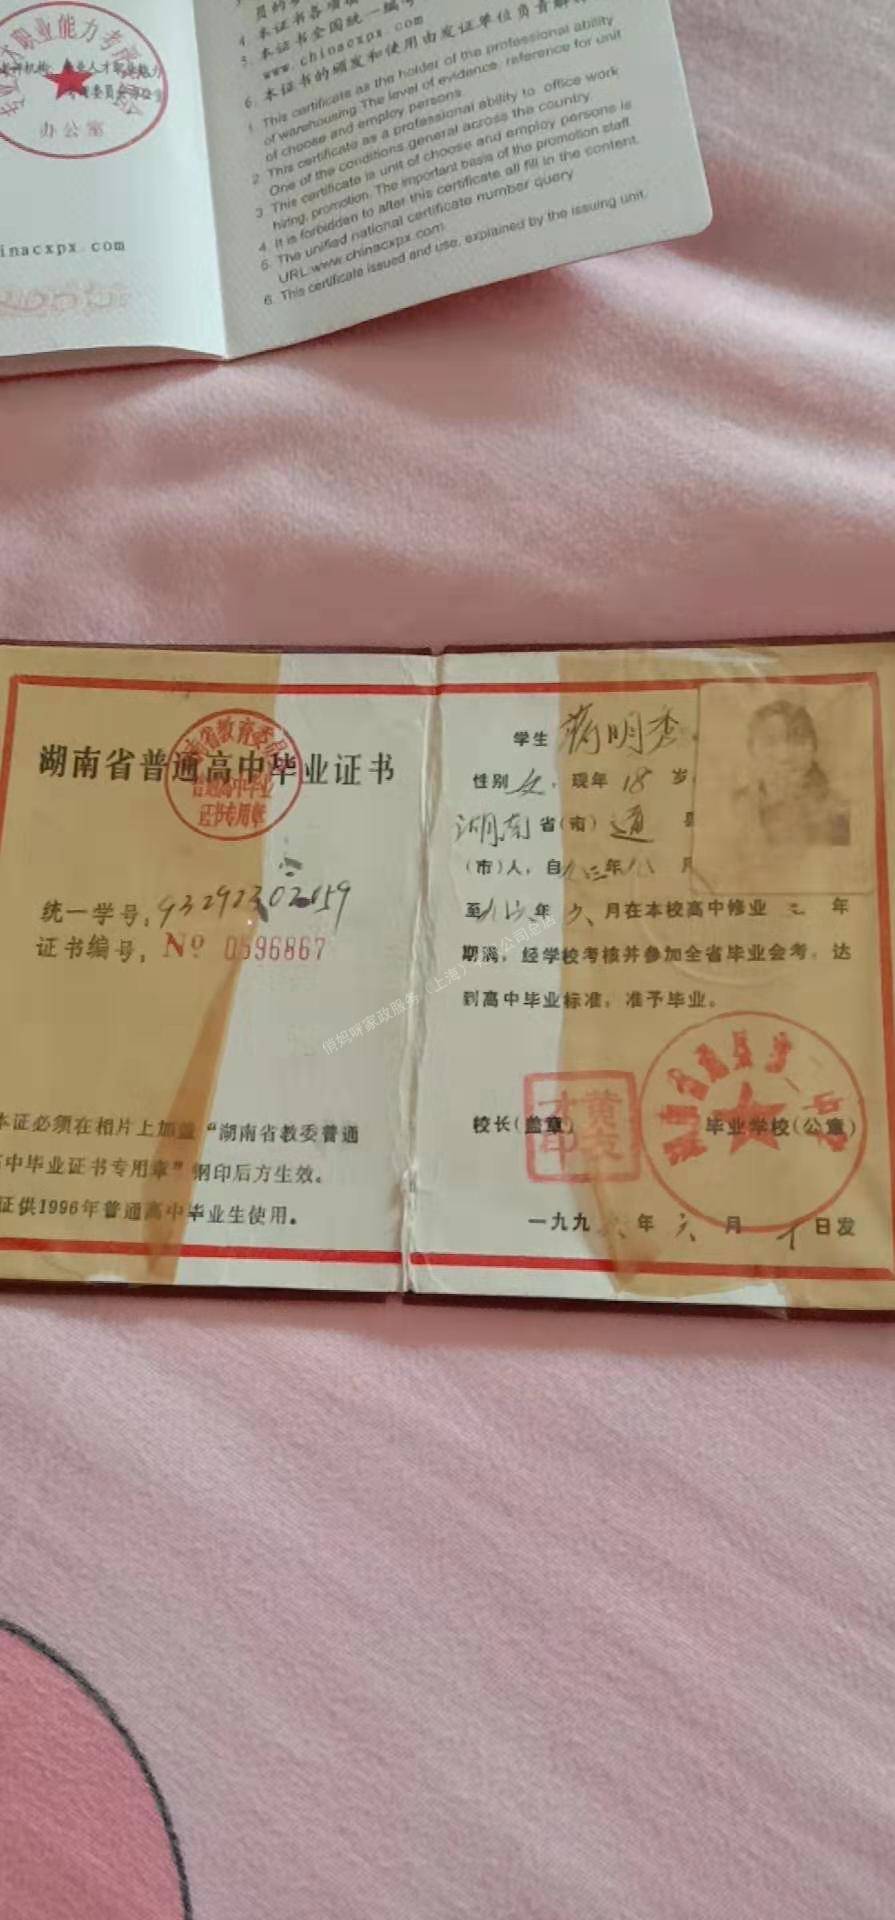 职业能力考
办公室
inacxpx.com
4. 本证书各项
5. 本证书全国统一编号
www.chinacxpx.com
6. 本证书的颁发和使用由发证单位负责解
1. This certificate as the holder of the professional ability
of warehousing The level of evidence, reference for unit
of choose and employ persons.
2. This certificate as a professional ability to office work
One of the conditions,general across the country.
3. This certificate is unit of choose and employ persons is
hiring, promotion. The important basis of the promotion staff.
4. It is forbidden to alter this certificate all fill in the content.
5. The unified national certificate number query
URL:www.chinacxpx.com.
6. This certificate issued and use, explained by the issuing unit.
湖南省普通高中毕业证书
省教育委员
普通高中毕业
证书专用章
统一学号:
证书编号: Nº 0596867
本证必须在相片上加盖“湖南省教委普通
高中毕业证书专用章”钢印后方生效。
证供1996年普通高中毕业生使用。
学生 蒋明秀
性别 女,现年 18 岁
湖南 省(市) 通 县
(市)人,自九三年八月
至九六年六月在本校高中修业三年
期满,经学校考核并参加全省毕业会考,达
到高中毕业标准,准予毕业。
校长(盖章)
毕业学校(公章)
一九九六年六月 日发
俏妈咪家政服务(上海)有限公司总店